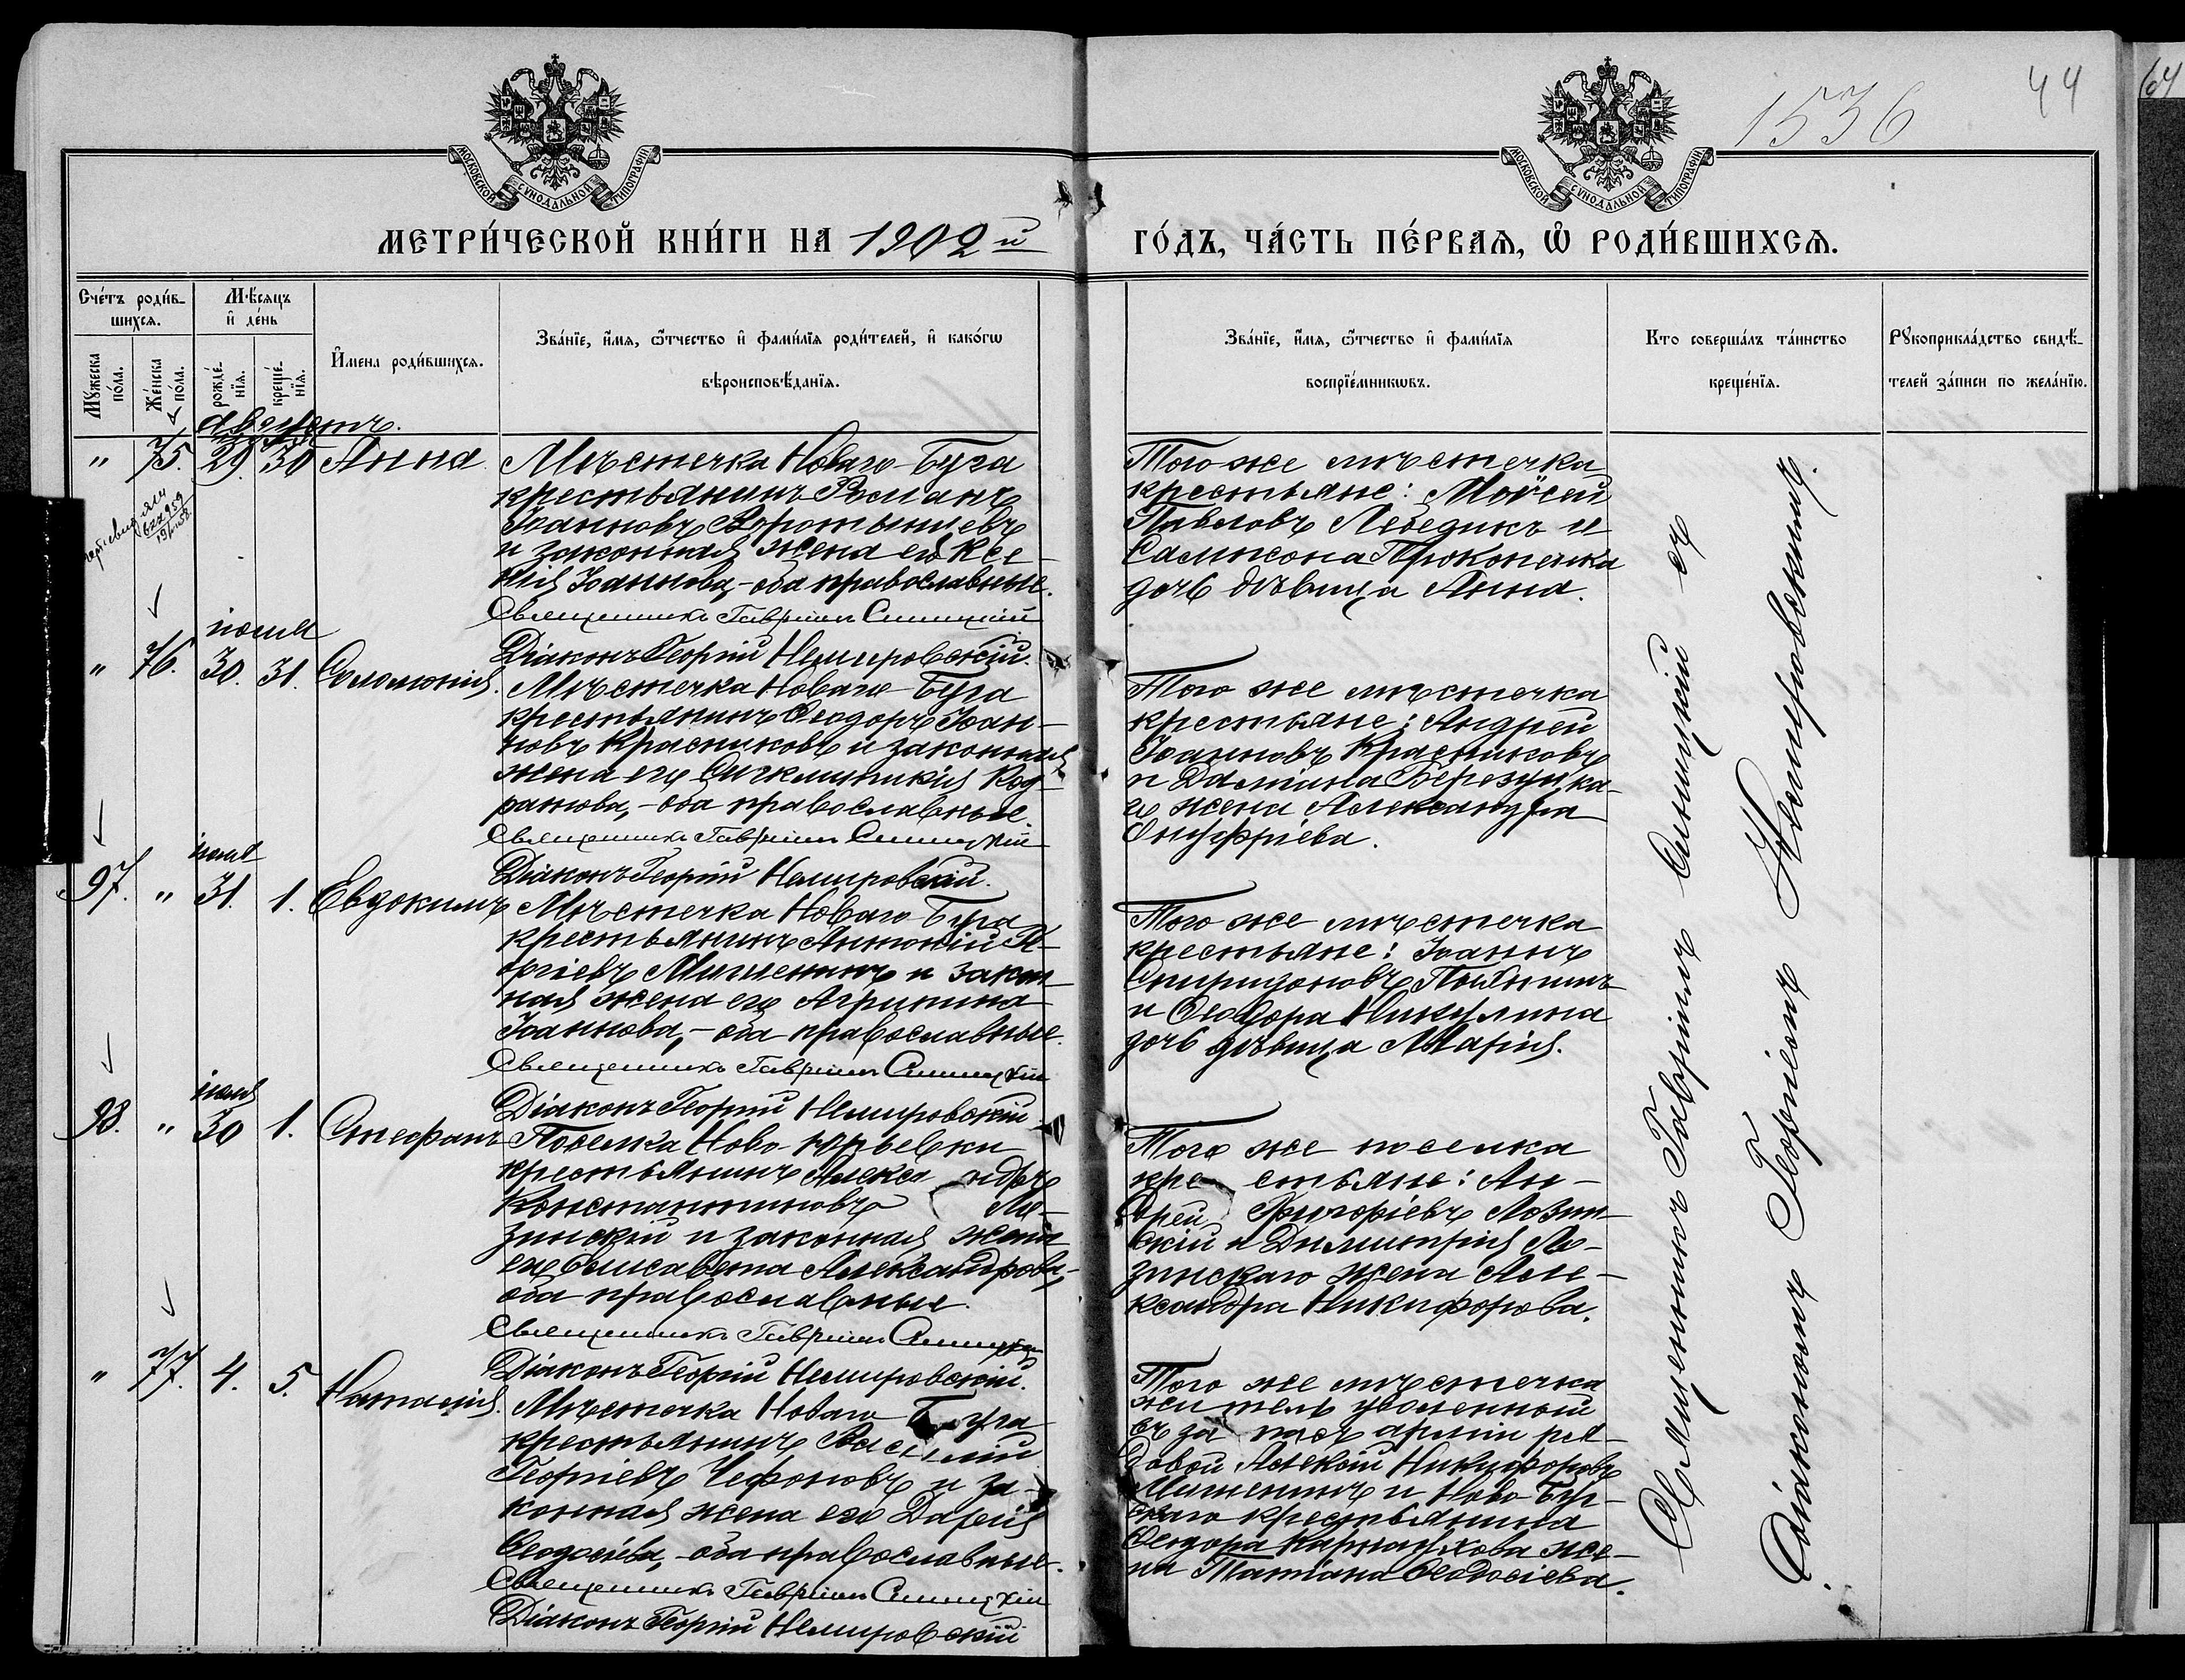 1536
44
64
МОСКОВСКОЙ СѴНОДАЛЬНОЙ ТИПОГРАФІИ
МОСКОВСКОЙ СѴНОДАЛЬНОЙ ТИПОГРАФІИ
МЕТРИ́ЧЕСКОЙ КНИ́ГИ НА 1902й
ГО́ДЪ, ЧА́СТЬ ПЕ́РВАѦ, Ѡ҆ РОДИ́ВШИХСѦ.
Сче́тъ роди́в-
шихсѧ.
Мꙋ́жеска по́ла.
Же́нска по́ла.
Мѣ́сѧцъ
и҆ де́нь
рожде́-
нїѧ.
креще́-
нїѧ.
И҆мена̀ роди́вшихсѧ.
Зва́нїе, и҆́мѧ, ѻ҆́тчество и҆ фами́лїѧ роди́телей, и҆ како́гѡ
вѣроисповѣ́данїѧ.
Зва́нїе, и҆́мѧ, ѻ҆́тчество и҆ фами́лїѧ
воспрїе́мникѡвъ.
Кто̀ соверша́лъ та́инство
креще́нїѧ.
Рꙋкоприкла́дство свидѣ́-
телей за́писи по жела́нїю.
Августъ.
" 75. 29. 30 Анна
Мѣстечка Новаго Буга
крестьянинъ Романъ
Іоанновъ Воротынцевъ
и законная жена его Ксе-
нія Іоаннова, - оба православные.
Священникъ Гавріилъ Синицкій
Діаконъ Георгій Немировскій.
Того же мѣстечка
крестьяне: Моѵсей
Павловъ Лебедикъ и
Самсона Прокопенка
дочь дѣвица Анна.
іюля
" 76. 30. 31. Соломонія.
Мѣстечка Новаго Буга
крестьянинъ Ѳеодоръ Іоан-
новъ Красниковъ и законная
жена его Сигклитикія Код-
ратова, - оба православные.
Священникъ Гавріилъ Синицкій
Діаконъ Георгій Немировскій.
Того же мѣстечка
крестьяне: Андрей
Іоанновъ Красниковъ
и Даміана Березуцка-
го жена Александра
Онуфріева.
іюля
97. " 31. 1. Евдокимъ
Мѣстечка Новаго Буга
крестьянинъ Антоній Ге-
оргіевъ Мишенинъ и закон-
ная жена его Агрипина
Іоаннова, - оба православные.
Священникъ Гавріилъ Синицкій
Діаконъ Георгій Немировскій.
Того же мѣстечка
крестьяне: Іоаннъ
Спиридоновъ
и Ѳеодора Никулина
дочь дѣвица Марія.
іюля
98. " 30 1. Стефанъ
Поселка Ново-Юрьевки
крестьянинъ Александръ
Константиновъ Ло-
зинскій и законная жена
его Елисавета Александрова, -
оба православные.
Священникъ Гавріилъ Синицкій
Діаконъ Георгій Немировскій.
Того же поселка
крестьяне: Ан-
дрей Григоріевъ Лозин-
скій и Димитрія Ло-
зинскаго жена Але-
ксандра Никифорова.
" 77. 4. 5. Наталія.
Мѣстечка Новаго Буга
крестьянинъ Василій
Георгіевъ Чефоновъ и за-
конная жена его Дарія
Ѳеодосіева, - оба православные.
Священникъ Гавріилъ Синицкій
Діаконъ Георгій Немировскій
Того же мѣстечка
житель уволенный
въ запасъ арміи ря-
довой Алексій Никифоровъ
Мишенинъ и Ново-Буг-
скаго крестьянина
Ѳеодора Карнаухова же-
на Татіана Ѳеодосіева.
Священникъ Гавріилъ Синицкій съ
Діакономъ Георгіемъ Немировскимъ.